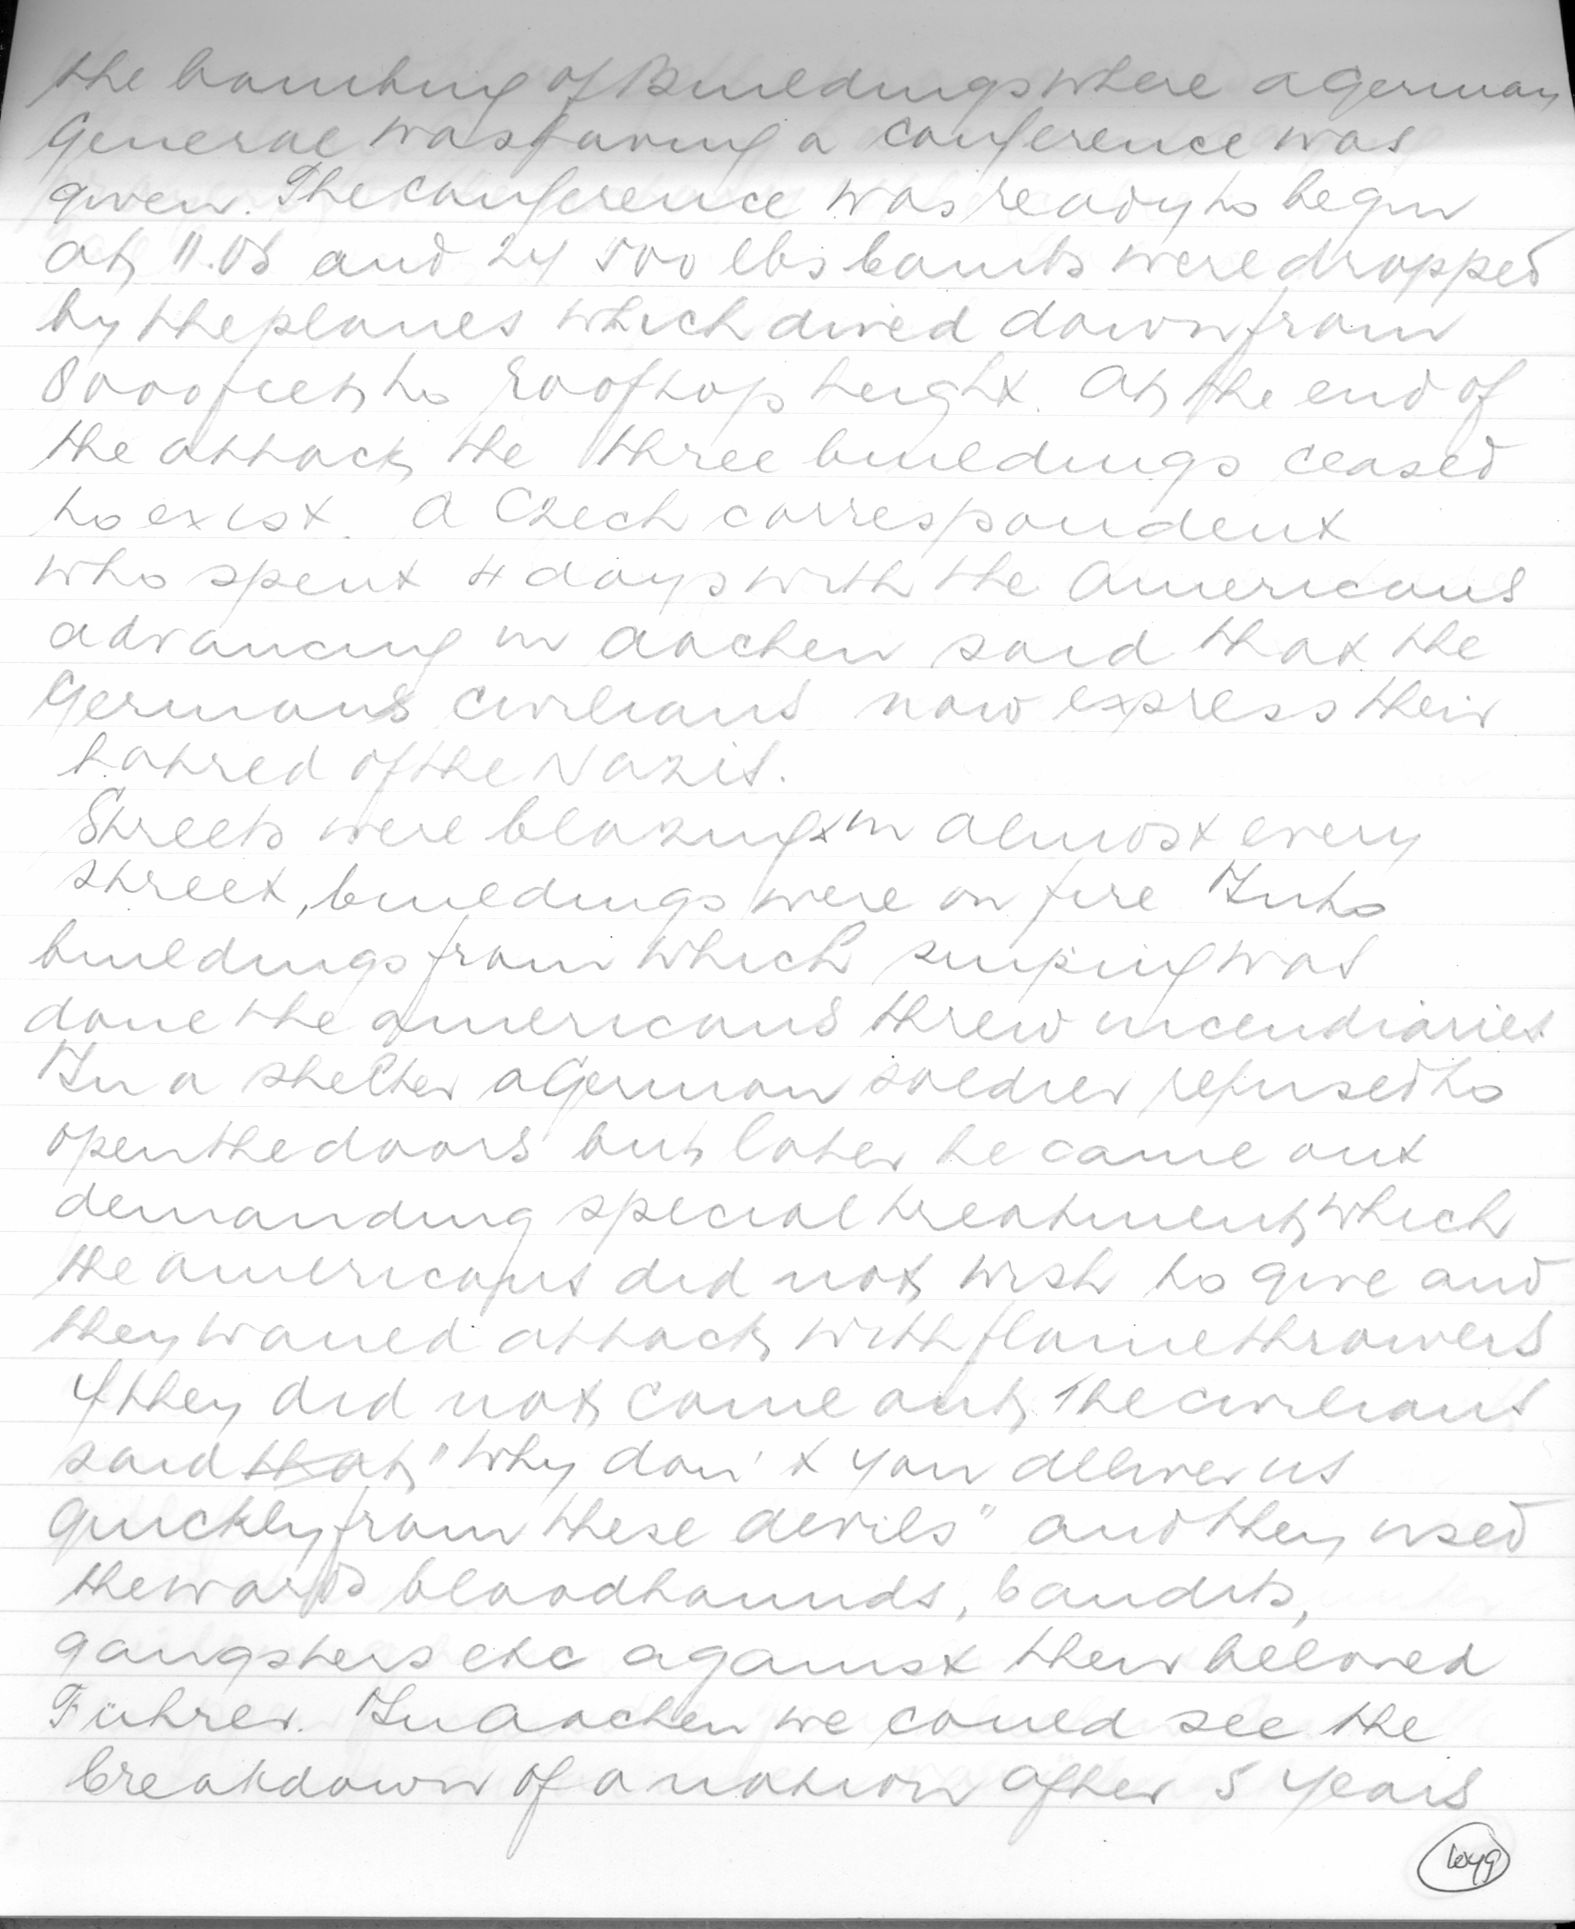 the bombing of Buildings where a German
General was having a conference was
given. The conference was ready to begin
at 11.05 and 24 500 lbs bombs were dropped
by the planes which dived down from
8000 feet to rooftop height. At the end of
the attack the three buildings ceased
to exist. A Czech correspondent
who spent 4 days with the Americans
advancing in Aachen said that the
Germans civilians now express their
hatred of the Nazis.
Streets were blazing in almost every
street, buildings were on fire Into
buildings from which sniping was
done the Americans threw incendiaries
In a shelter a German soldier refused to
open the doors but later he came out
demanding special treatment which
the Americans did not wish to give and
they would attack with flamethrowers
If they did not come out, The civilians
said that "Why don't you deliver us
quickly from these devils" and they used
the words bloodhounds, bandits,
gangsters etc against their beloved
Führer. In Aachen we could see the
breakdown of a nation after 5 years